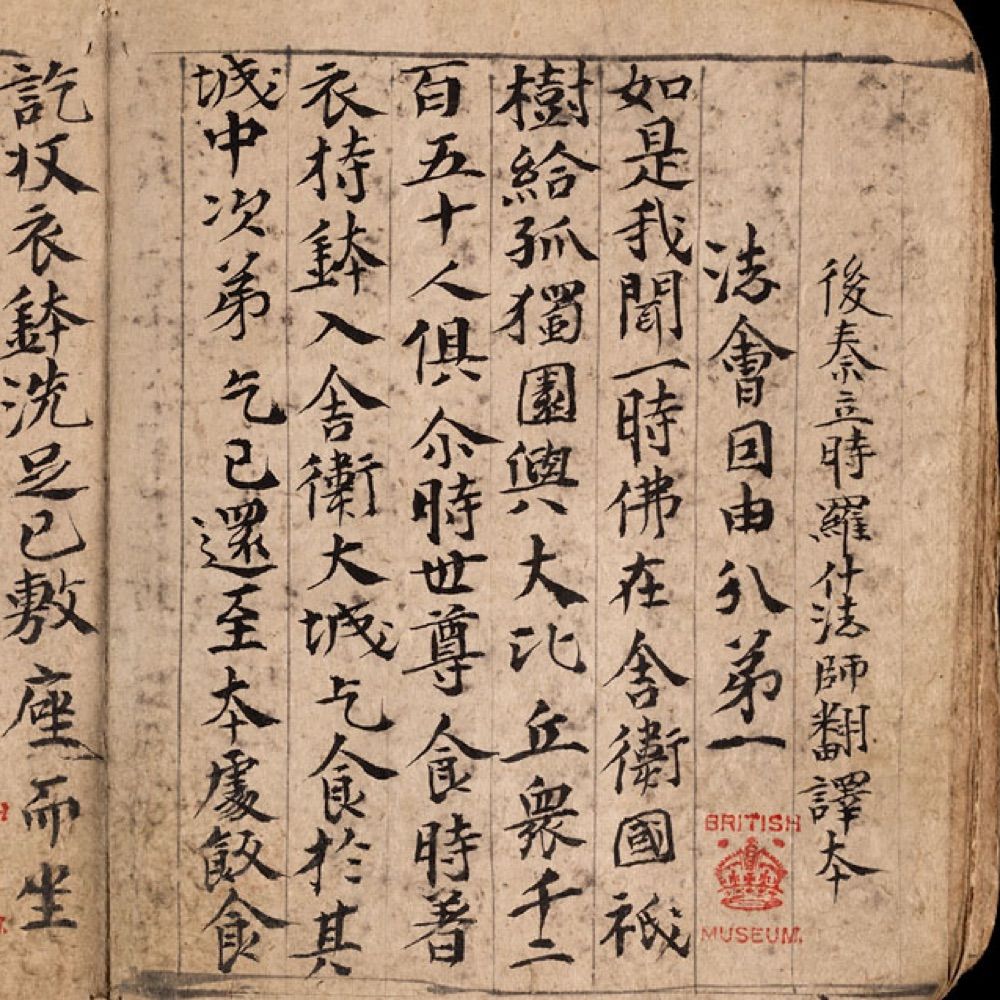 後秦三時羅什法師翻譯本
法會因由分第一
如是我聞一時佛在舍衛國祇
樹給孤獨園與大比丘衆千二
百五十人俱尒時世尊食時着
衣持鉢入舎衛大城乞食於其
城中次苐乞已還至本處飯食
訖收衣鉢洗足已敷座而坐
BRITISH
MUSEUM